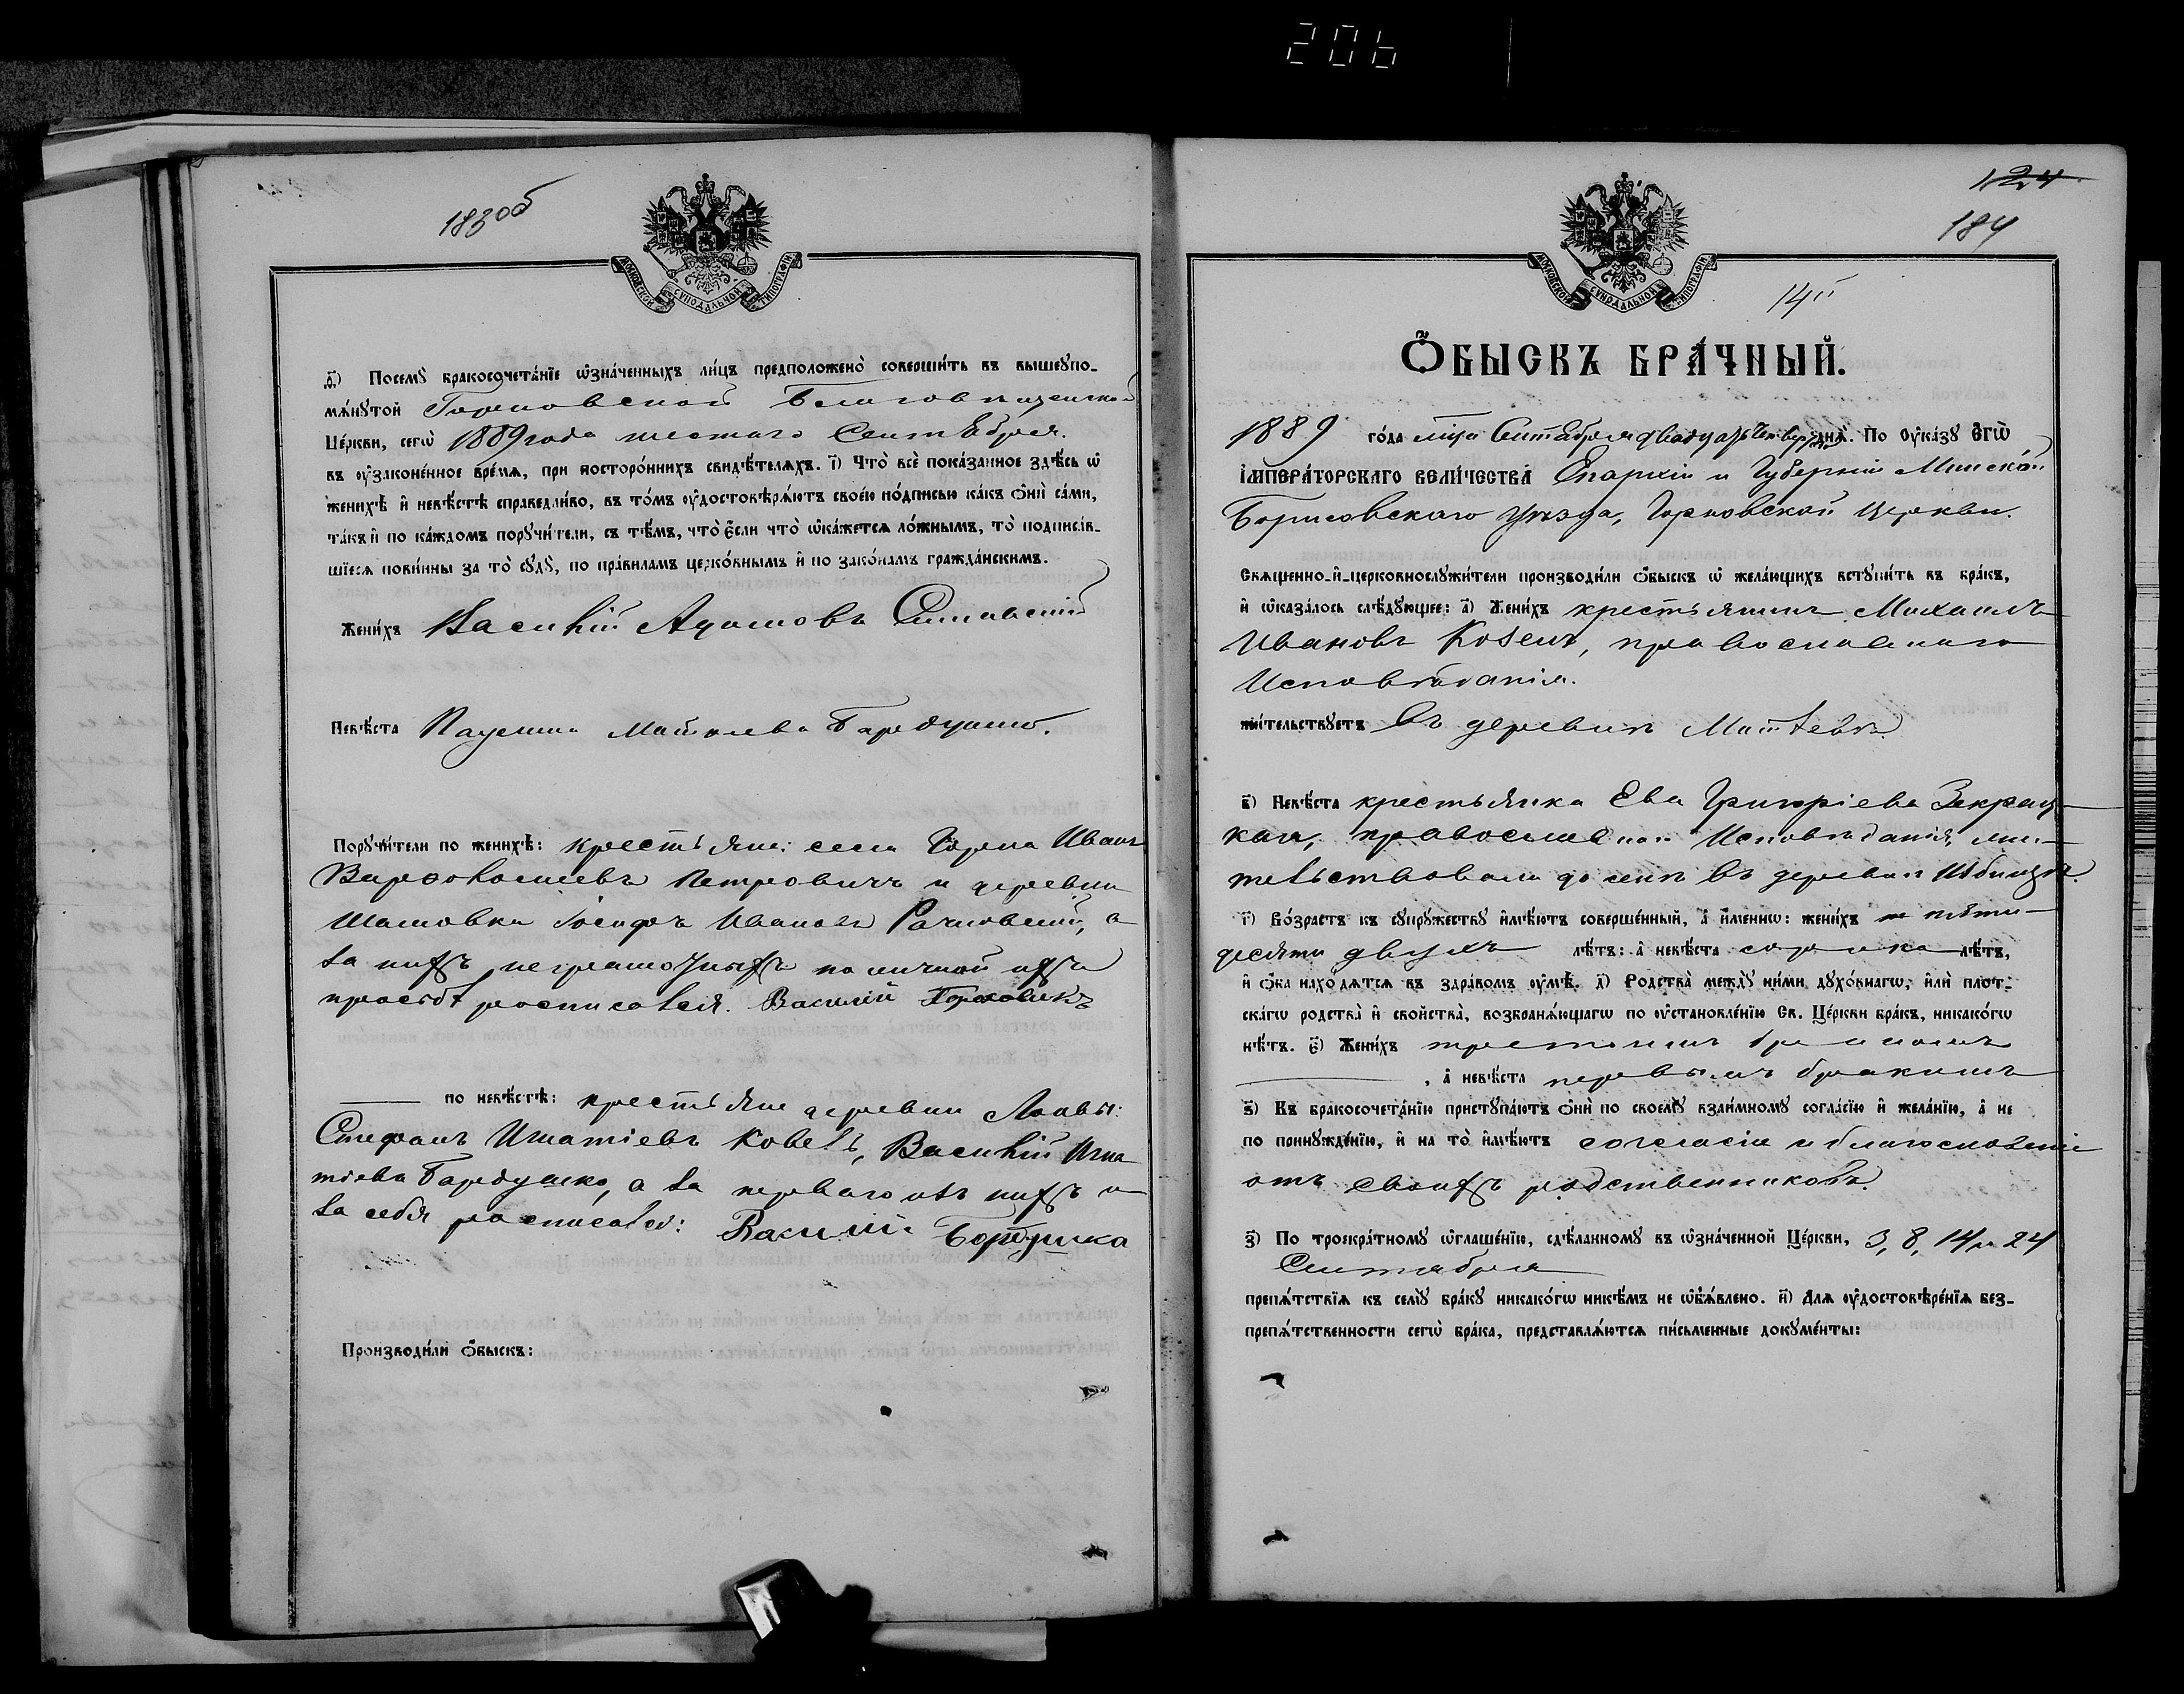 206
183об
МОСКОВСКОЙ СУНОДАЛЬНОЙ ТИПОГРАФІИ
д҃і) Посемꙋ бракосочета́нїе ѡ҆зна́ченныхъ ли́цъ предположено̀ соверши́ть въ вышеꙋпо-
мѧ́нꙋтой Горновской Благовѣщенской
Це́ркви, сегѡ̀ 1889 года шестаго Сентября.
въ ᲂу҆законе́нное вре́мѧ, при посторо́ннихъ свидѣ́телѧхъ. і҃) Что̀ всѐ пока́занное здѣ́сь ѡ҆
женихѣ̀ и҆ невѣ́стѣ справедли́во, въ то́мъ ᲂу҆достовѣрѧ́ютъ свое́ю по́дписью ка́къ ѻ҆нѝ са́ми,
та́къ и҆ по ка́ждомъ порꙋчи́тели, съ тѣ́мъ, что̀ є҆́сли что̀ ѡ҆ка́жетсѧ ло́жнымъ, то̀ подписа́в-
шїесѧ пови́нны за то̀ сꙋдꙋ̀, по пра́виламъ церко́внымъ и҆ по зако́намъ гражда́нскимъ.
Жени́хъ Василій Адамовъ
Невѣ́ста
Порꙋчи́тели по женихѣ̀: крестьяне: села Горна Иванъ
Варфоломеевъ Петровичъ и деревни
Шашовки Іосифъ Ивановъ а
за нихъ неграмотныхъ по личной ихъ
просьбѣ росписался. Василій
по невѣ́стѣ: крестьяне деревни
Стефанъ Игнатіевъ Ковель, Василій Игна
тіевъ Бардушко, а за перваго изъ нихъ и
за себя росписался: Василій
Производи́ли ѻ҆́быскъ:
124
184
МОСКОВСКОЙ СУНОДАЛЬНОЙ ТИПОГРАФІИ
14
Ѻ҆́БЫСКЪ БРА́ЧНЫЙ.
1889 го́да мца Сентября двадцать четвер. днѧ̀. По Оу҆ка́зꙋ Є҆гѡ̀
І҆МПЕРА́ТОРСКАГО ВЕЛИ́ЧЕСТВА Епархіи и Губерніи Минской
Борисовскаго уѣзда, Горновской Церкви.
Свѧще́нно-и҆-церковнослꙋжи́тели производи́ли ѻ҆́быскъ ѡ҆ жела́ющихъ встꙋпи́ть въ бра́къ,
и҆ ѡ҆каза́лось слѣ́дꙋющее: а҃) Жени́хъ крестьянинъ Михаилъ
Ивановъ Козелъ, православнаго
Исповѣданія.
жи́тельствꙋетъ въ деревнѣ
в҃) Невѣ́ста крестьянка Ева Григоріева Закрац-
кая, православнаго Исповѣданія, жи-
тельствовала до селѣ въ деревнѣ
г҃) Во́зрастъ къ сꙋпрꙋ́жествꙋ и҆мѣ́ютъ соверше́нный, а҆ и҆́меннѡ: жени́хъ пяти-
десяти двухъ лѣ́тъ: а҆ невѣ́ста сорока лѣ́тъ,
и҆ ѻ҆́ба нахо́дѧтсѧ въ здра́вомъ ᲂу҆мѣ̀. д҃) Родства̀ междꙋ̀ ни́ми дꙋхо́внагѡ, и҆лѝ пло́т-
скагѡ родства̀ и҆ сво́йства, возбранѧ́ющагѡ по ᲂу҆становле́нїю Св. Це́ркви бра́къ, никако́гѡ
нѣ́тъ. є҃) Жени́хъ третьимъ бракомъ
, а҆ невѣ́ста первымъ бракомъ
ѕ҃) Къ бракосочета́нїю пристꙋпа́ютъ ѻ҆нѝ по своемꙋ̀ взаи́мномꙋ согла́сїю и҆ жела́нїю, а҆ не
по принꙋжде́нїю, и҆ на то̀ и҆мѣ́ютъ согласіе и благословеніе
отъ своихъ родственниковъ.
з҃) По троекра́тномꙋ ѡ҆глаше́нїю, сдѣ́ланномꙋ въ ѡ҆зна́ченной Це́ркви, 3, 8, 14 и 24
Сентября
препѧ́тствїѧ къ семꙋ̀ бра́кꙋ никако́гѡ никѣ́мъ не ѡ҆б̾ѧ́влено. и҃) Длѧ ᲂу҆достовѣре́нїѧ без-
препѧ́тственности сегѡ̀ бра́ка, представлѧ́ютсѧ пи́сьменные докꙋме́нты: